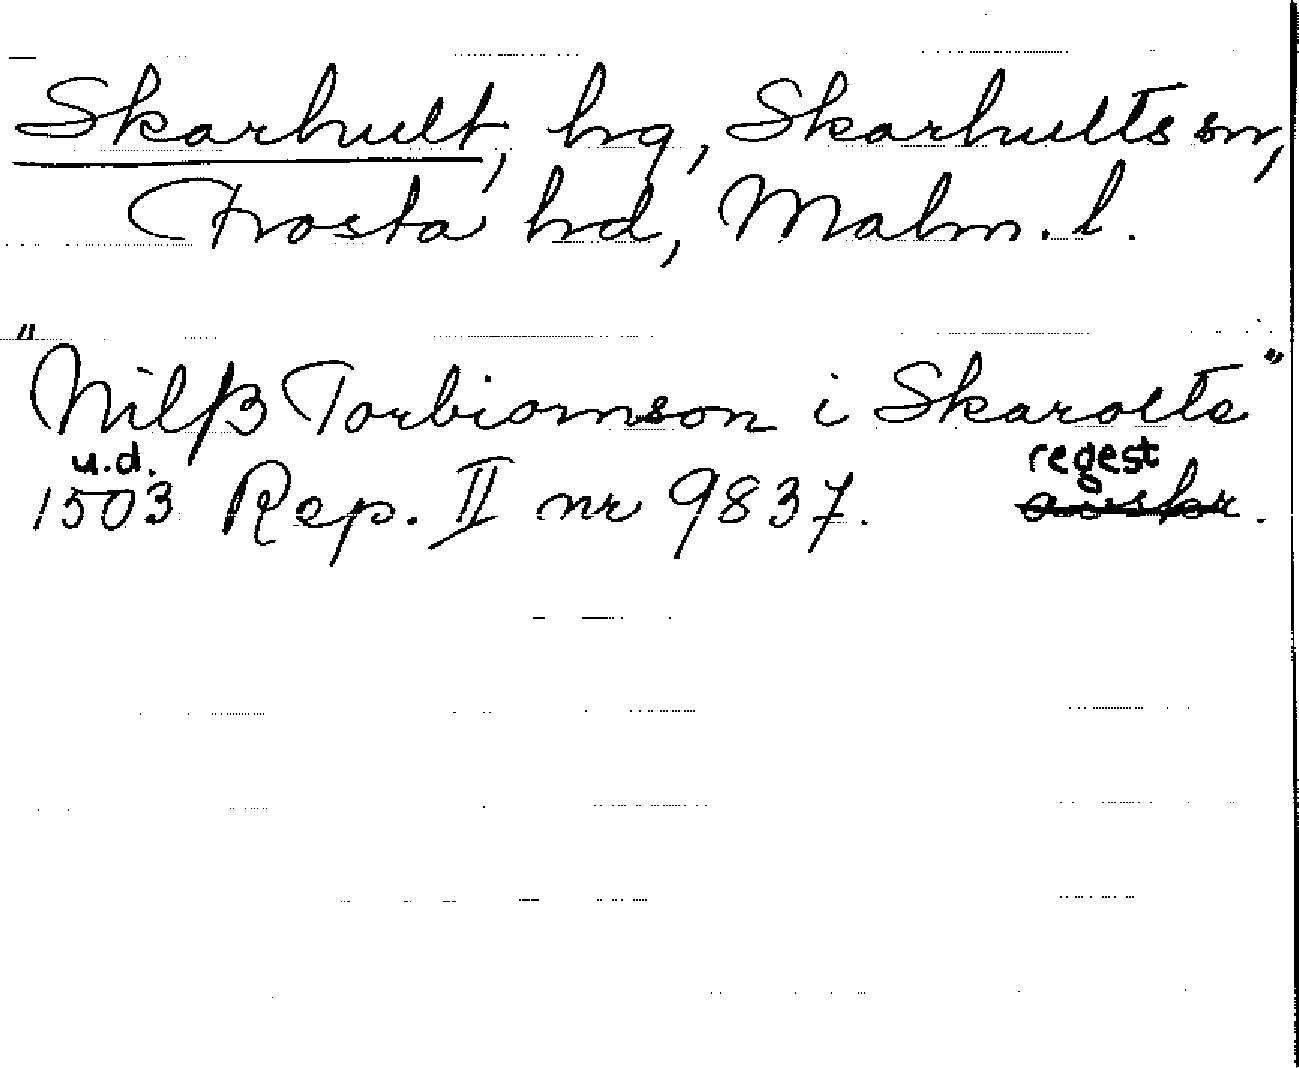 Skarhult, hg, Skarhults sn,
Frosta hd, Malm. l.
"Nilß Torbiornson i Skarolte"
u.d. regest
1503 Rep. II nr 9837. avskr.